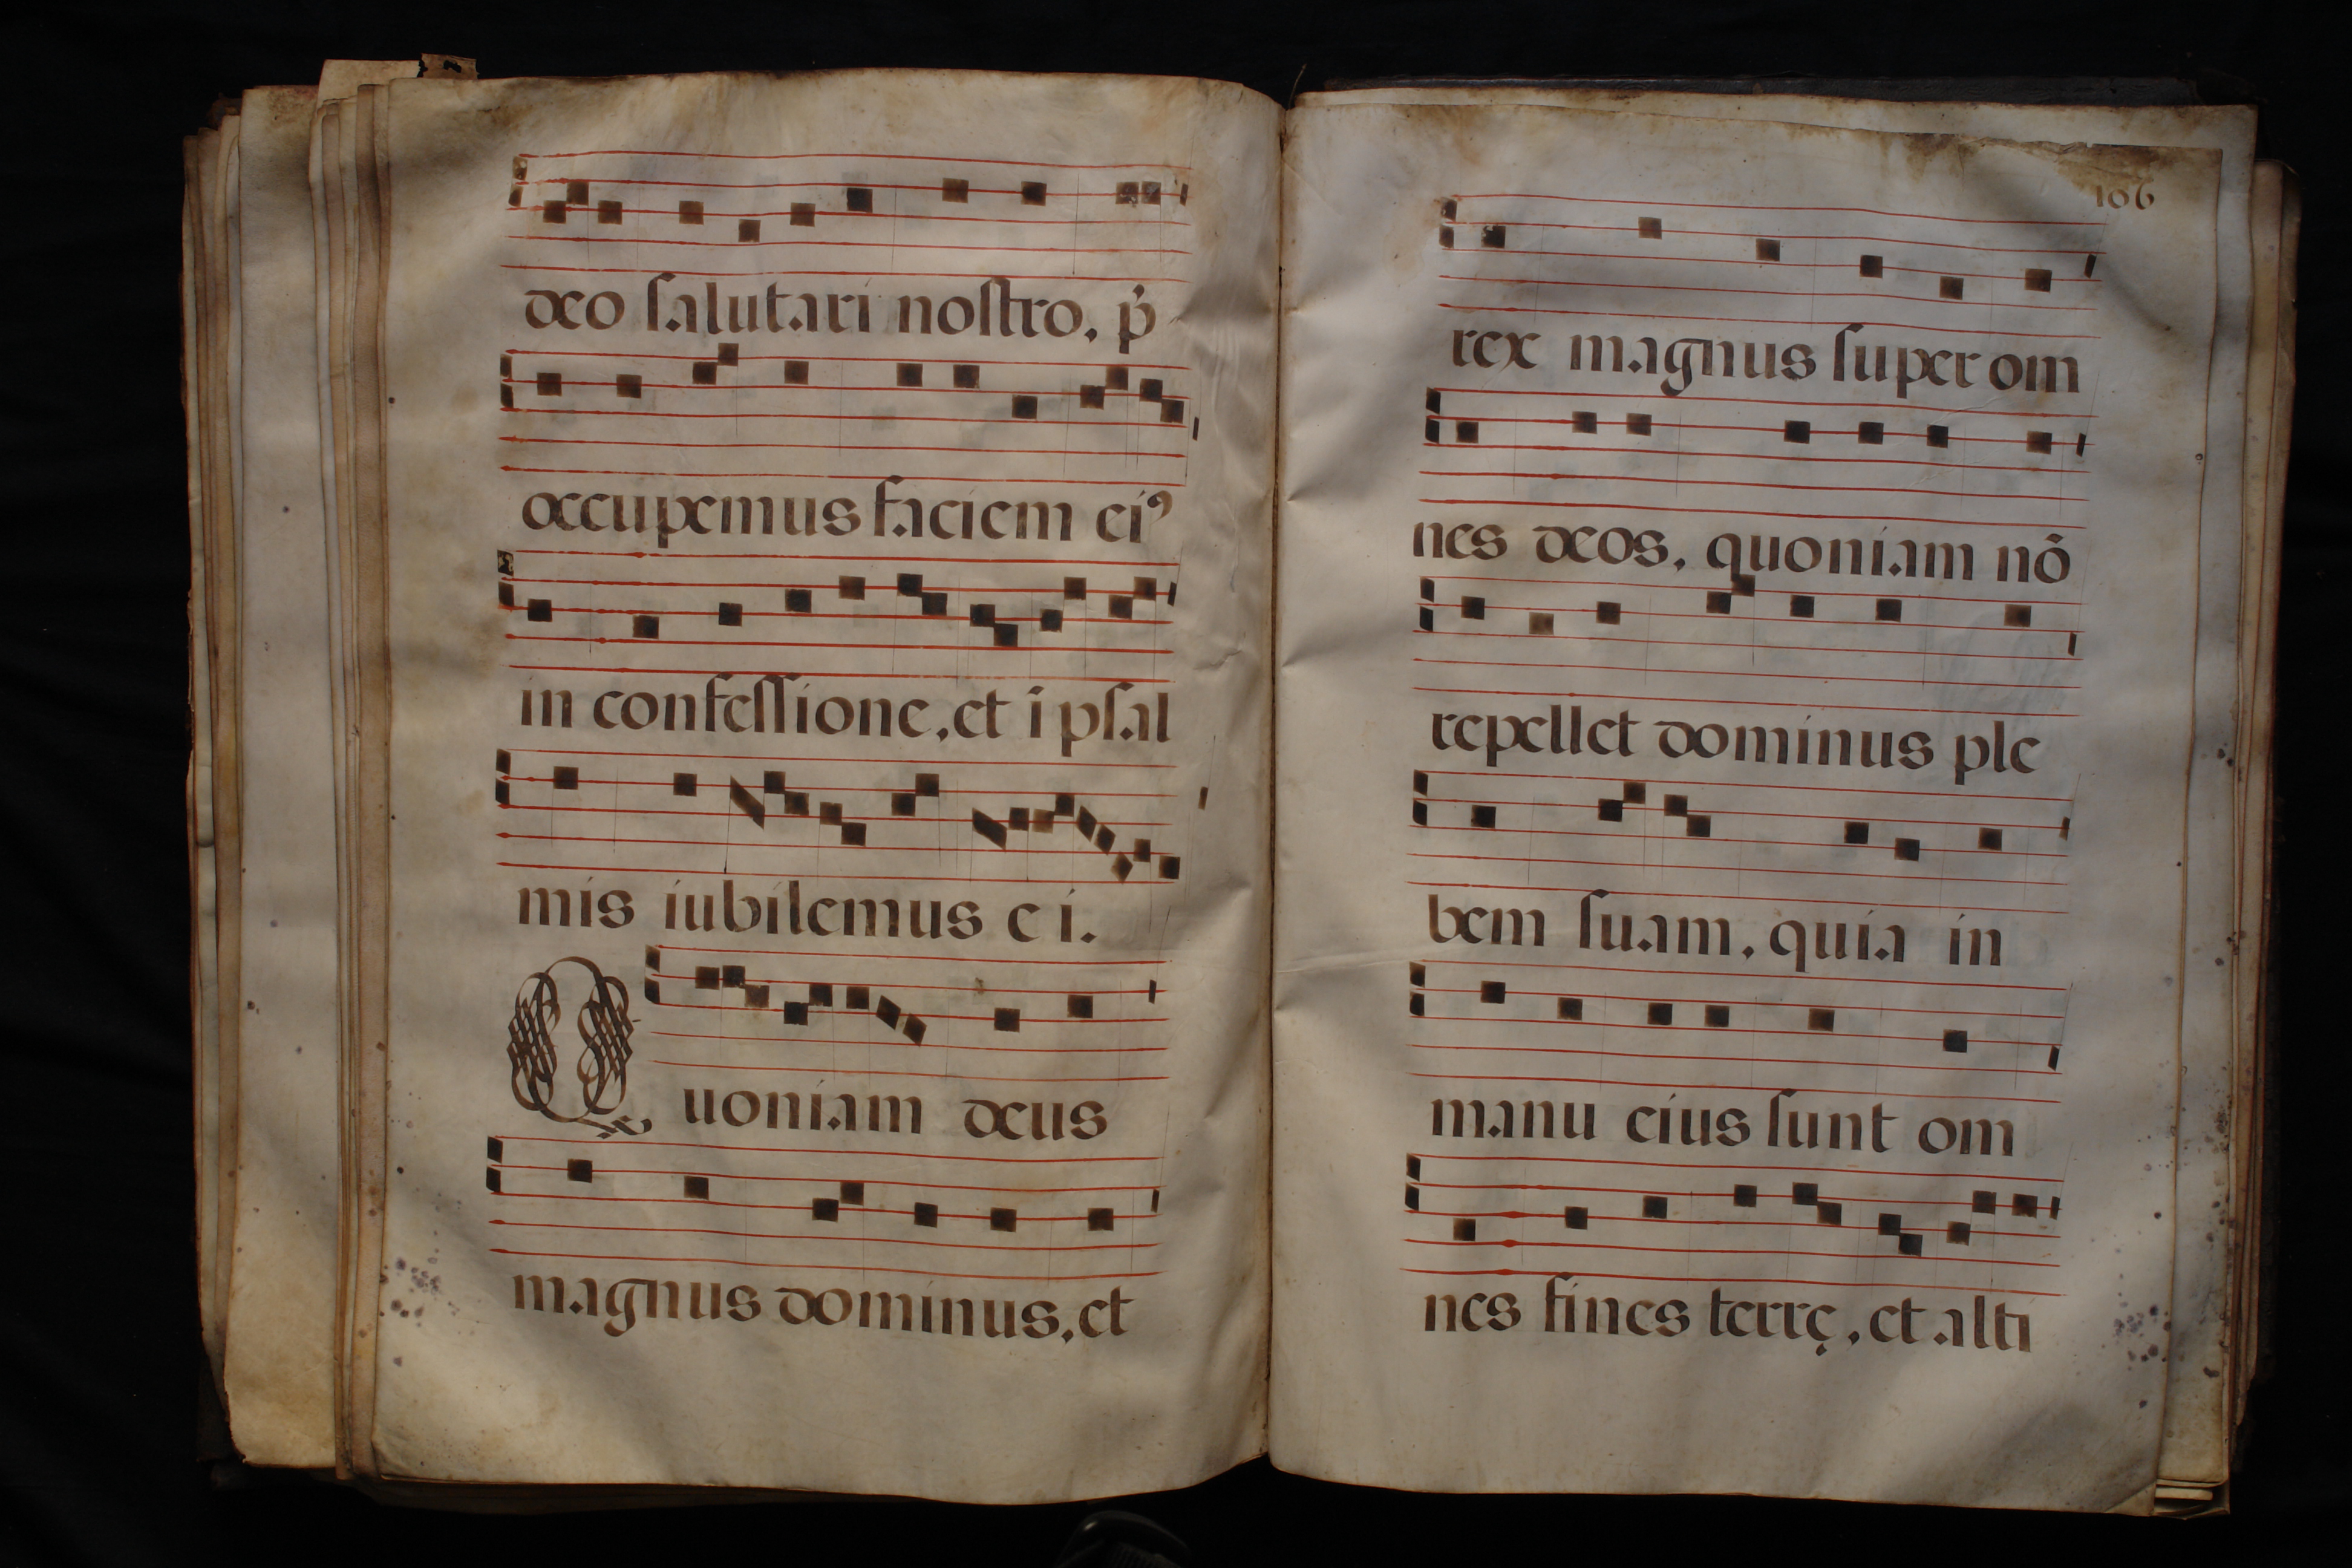 deo ſalutari noſtro, p̄
occupemus faciem ei⁹
in confeſſione, et ī pſal
mis iubilemus ei.
Quoniam deus
magnus dominus, et
106
rex magnus ſuper om
nes deos, quoniam nō
repellet dominus ple
bem ſuam, quia in
manu eius ſunt om
nes fines terrę, et alti